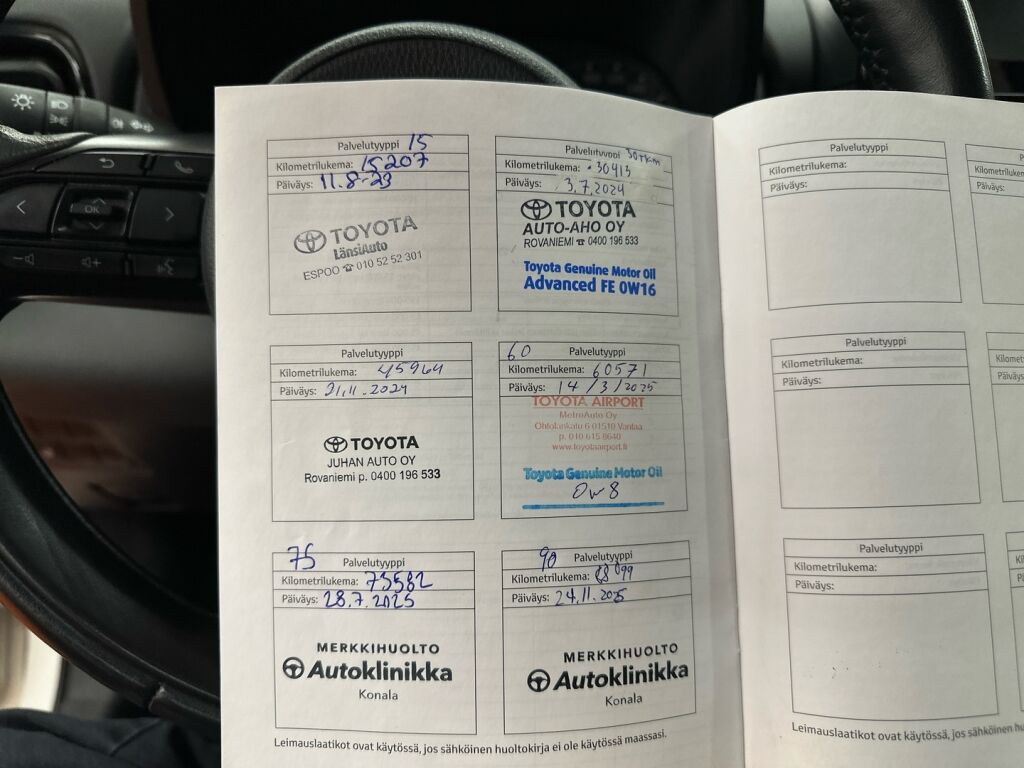 OK
Palvelutyyppi 15
Kilometrilukema: 15207
Päiväys: 11.8-23
TOYOTA
LänsiAuto
ESPOO ☎ 010 52 52 301
Palvelutyyppi 30tkm
Kilometrilukema: 30413
Päiväys: 3.7.2024
TOYOTA
AUTO-AHO OY
ROVANIEMI ☎ 0400 196 533
Toyota Genuine Motor Oil
Advanced FE 0W16
Palvelutyyppi
Kilometrilukema: 45964
Päiväys: 21.11.2024
TOYOTA
JUHAN AUTO OY
Rovaniemi p. 0400 196 533
60 Palvelutyyppi
Kilometrilukema: 60571
Päiväys: 14/3/2025
TOYOTA AIRPORT
MetroAuto Oy
Ohtolankatu 6 01510 Vantaa
p. 010 615 8640
www.toyotaairport.fi
Toyota Genuine Motor Oil
0w8
75 Palvelutyyppi
Kilometrilukema: 73582
Päiväys: 28.7.2025
MERKKIHUOLTO
Autoklinikka
Konala
90 Palvelutyyppi
Kilometrilukema: 88099
Päiväys: 24.11.2025
MERKKIHUOLTO
Autoklinikka
Konala
Leimauslaatikot ovat käytössä, jos sähköinen huoltokirja ei ole käytössä maassasi.
Palvelutyyppi
Kilometrilukema:
Päiväys:
Kilometrilukema:
Päiväys:
Palvelutyyppi
Kilometrilukema:
Päiväys:
Palvelutyyppi
Kilometrilukema:
Päiväys:
Leimauslaatikot ovat käytössä, jos sähköinen